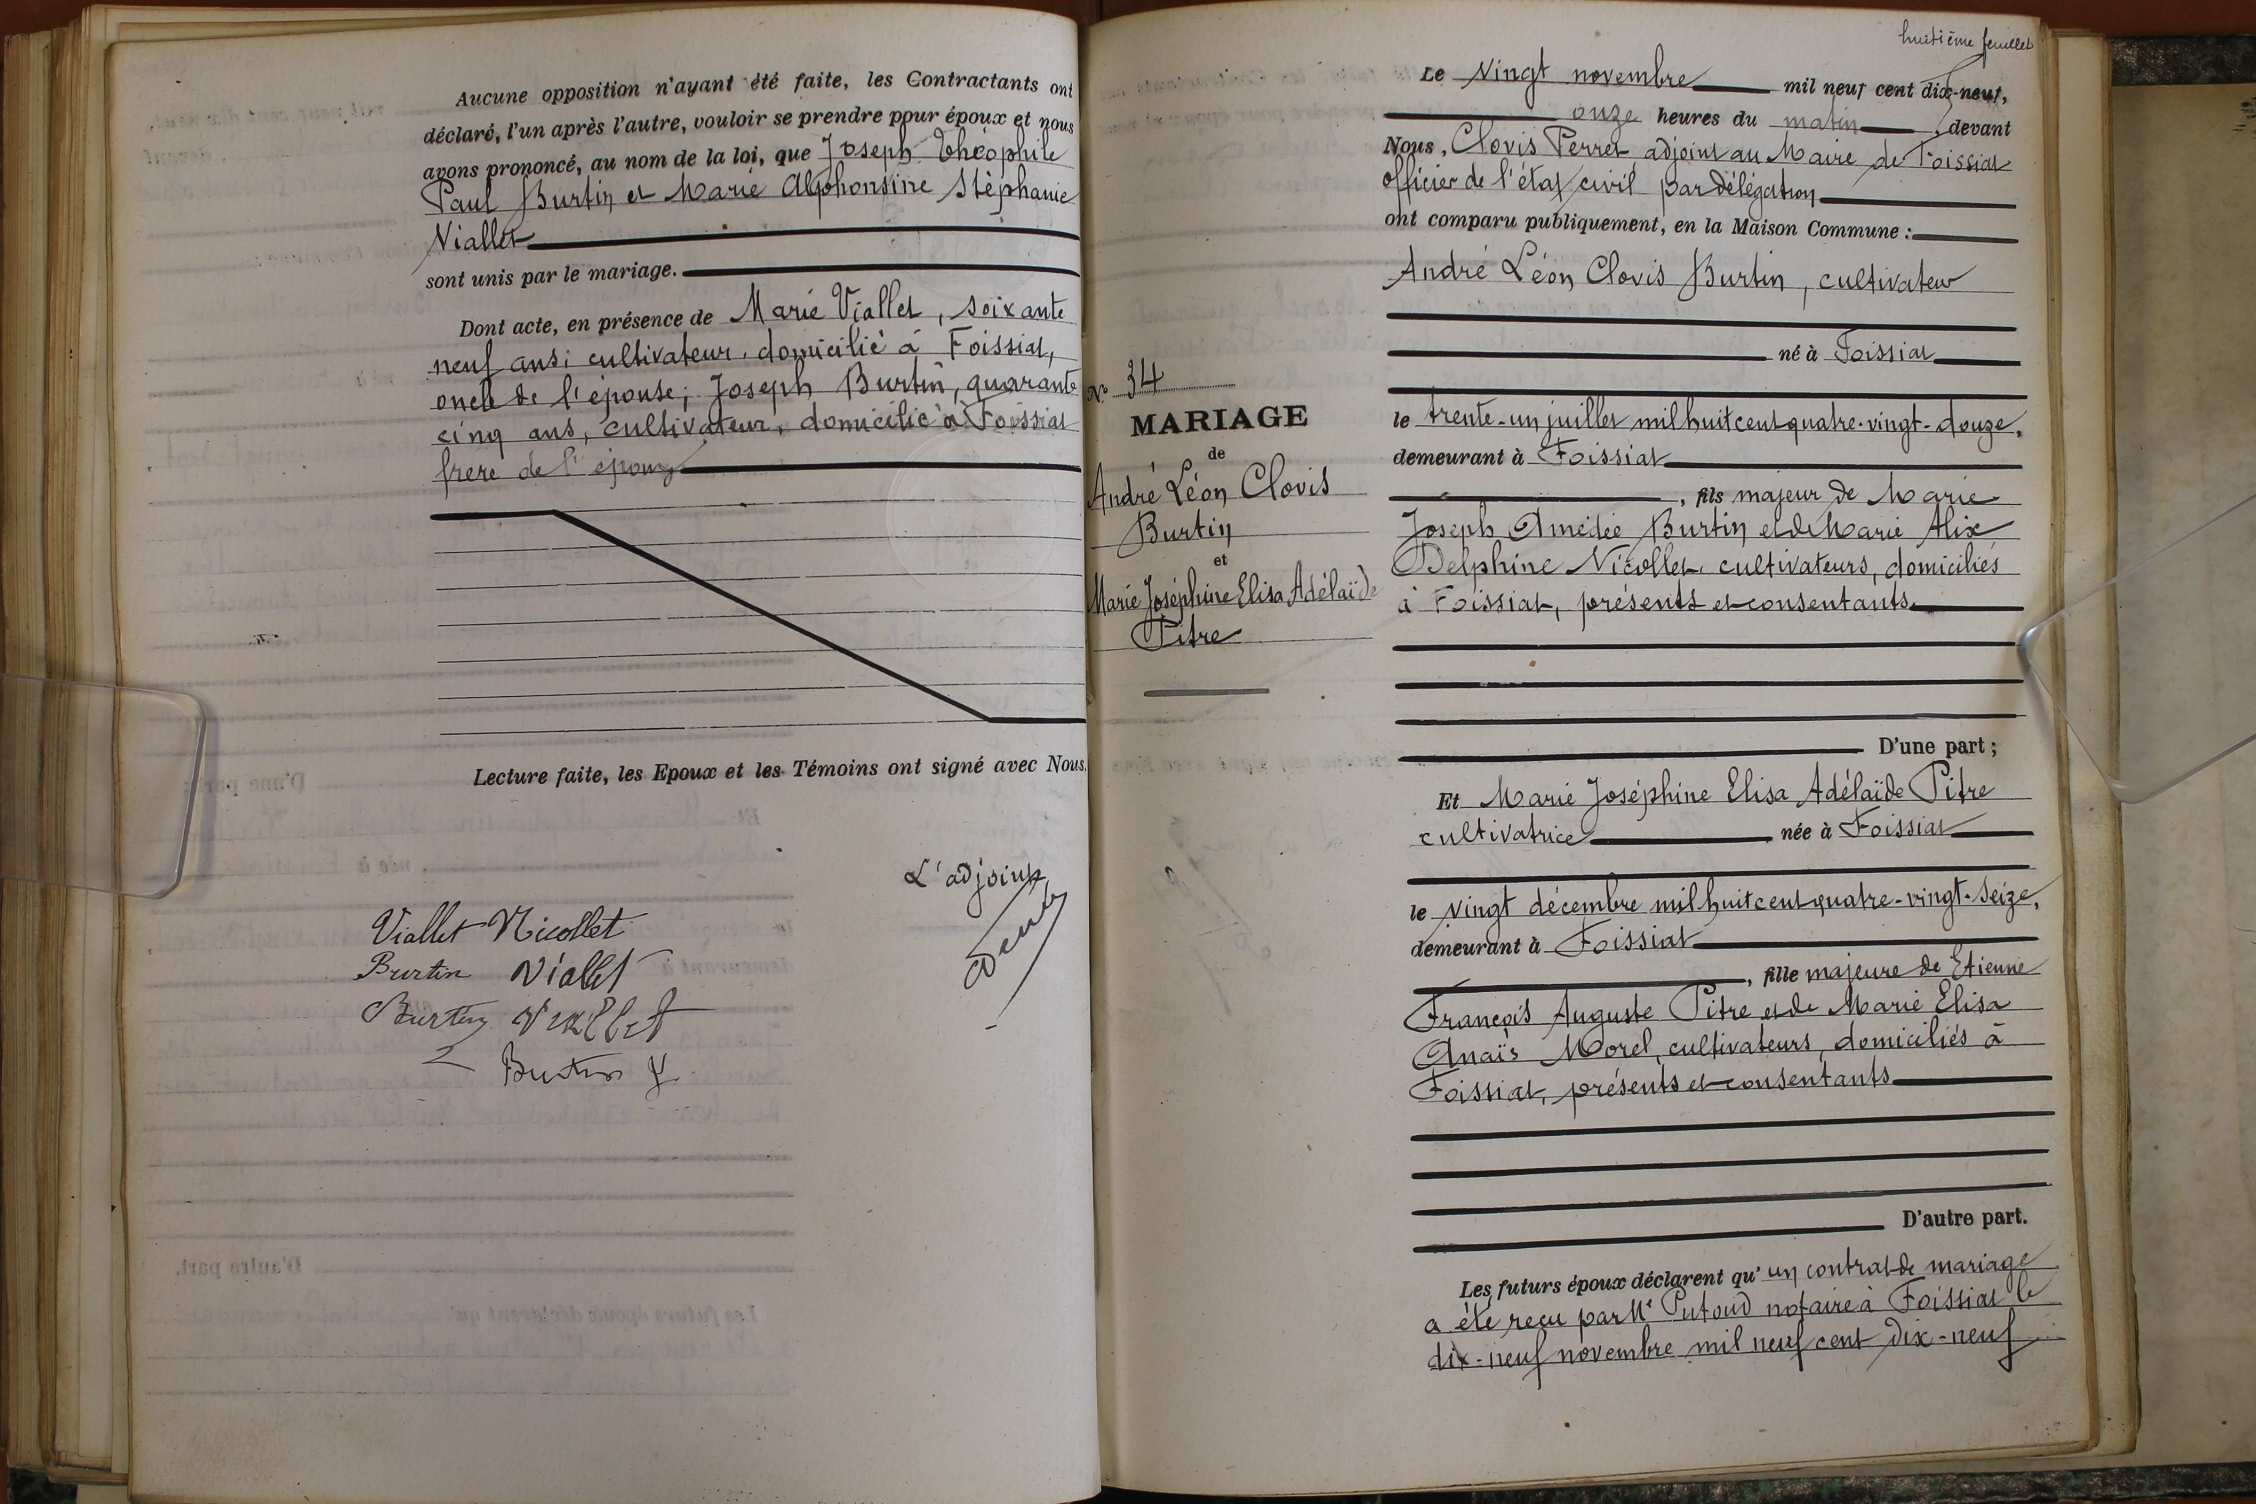 Aucune opposition n'ayant été faite, les Contractants ont
déclaré, l'un après l'autre, vouloir se prendre pour époux et nous
avons prononcé, au nom de la loi, que Joseph Théophile
Paul Burtin et Marie Alphonsine Stéphanie
Viallet
sont unis par le mariage.
Dont acte, en présence de Marie Viallet, soixante
neuf ans, cultivateur, domicilié à Foissiat,
oncle de l'épouse; Joseph Burtin, quarante
cinq ans, cultivateur, domicilié à Foissiat
frère de l'époux
Lecture faite, les Epoux et les Témoins ont signé avec Nous.
L'adjoint
Viallet Nicollet
Burtin Viallet
Burtin Viallet
Burtin J
huitième feuillet
Le vingt novembre mil neuf cent dix-neuf,
onze heures du matin, devant
Nous, Clovis Perret adjoint au Maire de Foissiat
officier de l'état civil par délégation
ont comparu publiquement, en la Maison Commune :
André Léon Clovis Burtin, cultivateur
né à Foissiat
le trente-un juillet mil huit cent quatre-vingt-douze,
demeurant à Foissiat
, fils majeur de Marie
Joseph Amédée Burtin et de Marie Alix
Delphine Nicollet, cultivateurs, domiciliés
à Foissiat, présents et consentants
D'une part ;
Et Marie Joséphine Elisa Adélaïde Pitre
cultivatrice née à Foissiat
le vingt décembre mil huit cent quatre-vingt-seize,
demeurant à Foissiat
, fille majeure de Etienne
François Auguste Pitre et de Marie Elisa
Anaïs Morel, cultivateurs, domiciliés à
Foissiat, présents et consentants
D'autre part.
Les futurs époux déclarent qu'un contrat de mariage
a été reçu par Me Putoud notaire à Foissiat le
dix-neuf novembre mil neuf cent dix-neuf
No 34
MARIAGE
de
André Léon Clovis
Burtin
et
Marie Joséphine Elisa Adélaïde
Pitre